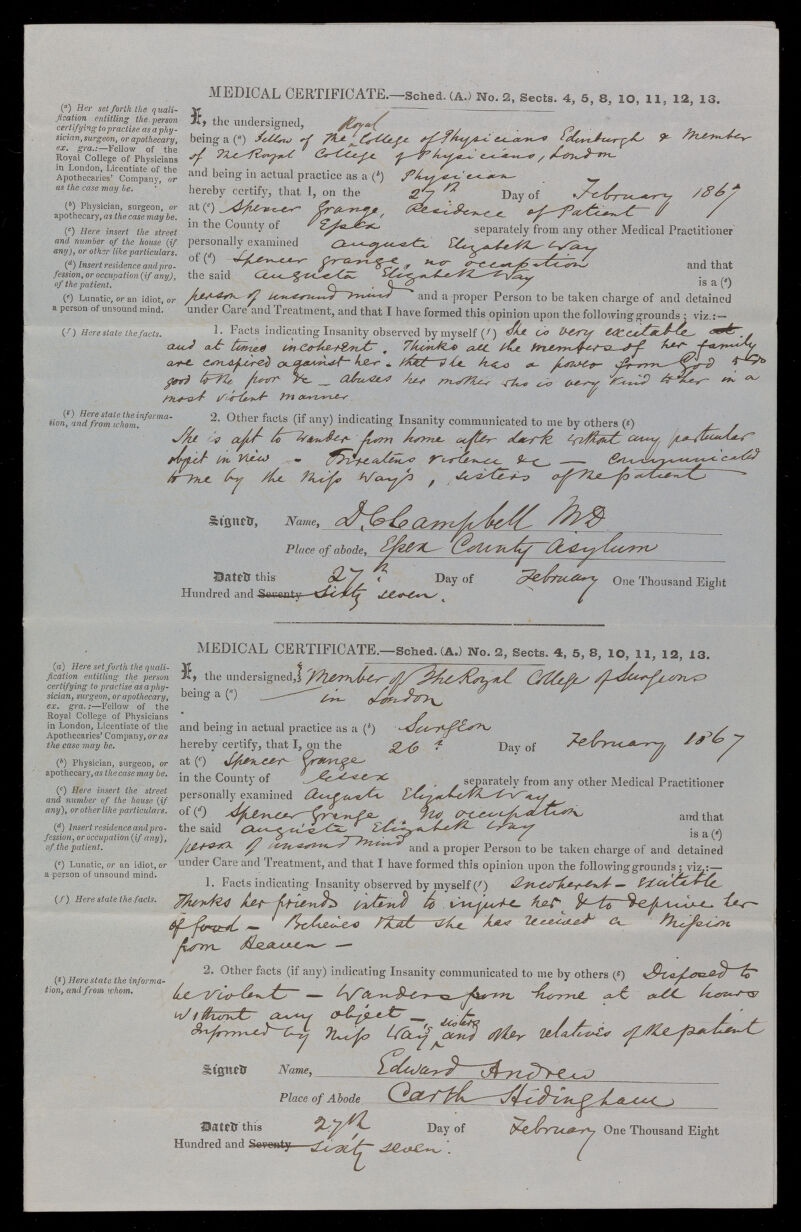 MEDICAL CERTIFICATE.—Sched. (A.) No. 2, Sects. 4, 5, 8, 10, 11, 12, 13.
(a) Her set forth the quali-
fication entitling the person
certifying to practise as a phy-
sician, surgeon, or apothecary,
ex. gra.:—Fellow of the
Royal College of Physicians
in London, Licentiate of the
Apothecaries' Company, or
as the case may be.
(b) Physician, surgeon, or
apothecary, as the case may be.
(c) Here insert the street
and number of the house (if
any), or other like particulars.
(d) Insert residence and pro-
fession, or occupation (if any),
of the patient.
(e) Lunatic, or an idiot, or
a person of unsound mind.
(f) Here state the facts.
(g) Here state the informa-
tion, and from whom.
I, the undersigned,
being a (a) Fellow of The Royal College of Physicians Edinburgh & Member
of The Royal College of Physicians, London
and being in actual practice as a (b) Physician
hereby certify, that I, on the 27th Day of February 1867
at (c) Spencer Grange, Residence of Patient
in the County of Essex separately from any other Medical Practitioner
personally examined Augusta Elizabeth Way
of (d) Spencer Grange, no occupation and that
the said Augusta Elizabeth Way is a (e)
person of unsound mind and a proper Person to be taken charge of and detained
under Care and Treatment, and that I have formed this opinion upon the following grounds; viz.:—
1. Facts indicating Insanity observed by myself (f) She is very excitable
and at times incoherent. Thinks all the members of her family
are conspired against her. that she has a power from God to do
good to the poor &c — abuses her mother who is very kind to her in a
most violent manner
2. Other facts (if any) indicating Insanity communicated to me by others (g)
She is apt to wander from home after dark without any particular
object in view — Threatens violence &c — Communicated
to me by the Miss Way's, sisters of the patient
Signed, Name, D C Campbell MD
Place of abode, Essex County Asylum
Dated this 27th Day of February One Thousand Eight
Hundred and Seventy Sixty seven.
MEDICAL CERTIFICATE.—Sched. (A.) No. 2, Sects. 4, 5, 8, 10, 11, 12, 13.
(a) Here set forth the quali-
fication entitling the person
certifying to practise as a phy-
sician, surgeon, or apothecary,
ex. gra.:—Fellow of the
Royal College of Physicians
in London, Licentiate of the
Apothecaries' Company, or as
the case may be.
(b) Physician, surgeon, or
apothecary, as the case may be.
(c) Here insert the street
and number of the house (if
any), or other like particulars.
(d) Insert residence and pro-
fession, or occupation (if any),
of the patient.
(e) Lunatic, or an idiot, or
a person of unsound mind.
(f) Here state the facts.
(g) Here state the informa-
tion, and from whom.
I, the undersigned, Member of The Royal College of Surgeons
being a (a) in London
and being in actual practice as a (b) Surgeon
hereby certify, that I, on the 26th Day of February 1867
at (c) Spencer Grange
in the County of Essex separately from any other Medical Practitioner
personally examined Augusta Elizabeth Way
of (d) Spencer Grange No occupation and that
the said Augusta Elizabeth Way is a (e)
person of unsound mind and a proper Person to be taken charge of and detained
under Care and Treatment, and that I have formed this opinion upon the following grounds; viz.:—
1. Facts indicating Insanity observed by myself (f) Incoherent – excitable
Thinks her friends intend to injure her & to deprive her
of food — Believes that she has received a Mission
from Heaven —
2. Other facts (if any) indicating Insanity communicated to me by others (g) Disposed to
be violent — Wanders from home at all hours
without any object —
Informed by Miss Way's sisters and other relatives of the patient
Signed Name, Edward Andrew
Place of Abode Castle Hidingham
Dated this 27th Day of February One Thousand Eight
Hundred and Seventy sixty seven.